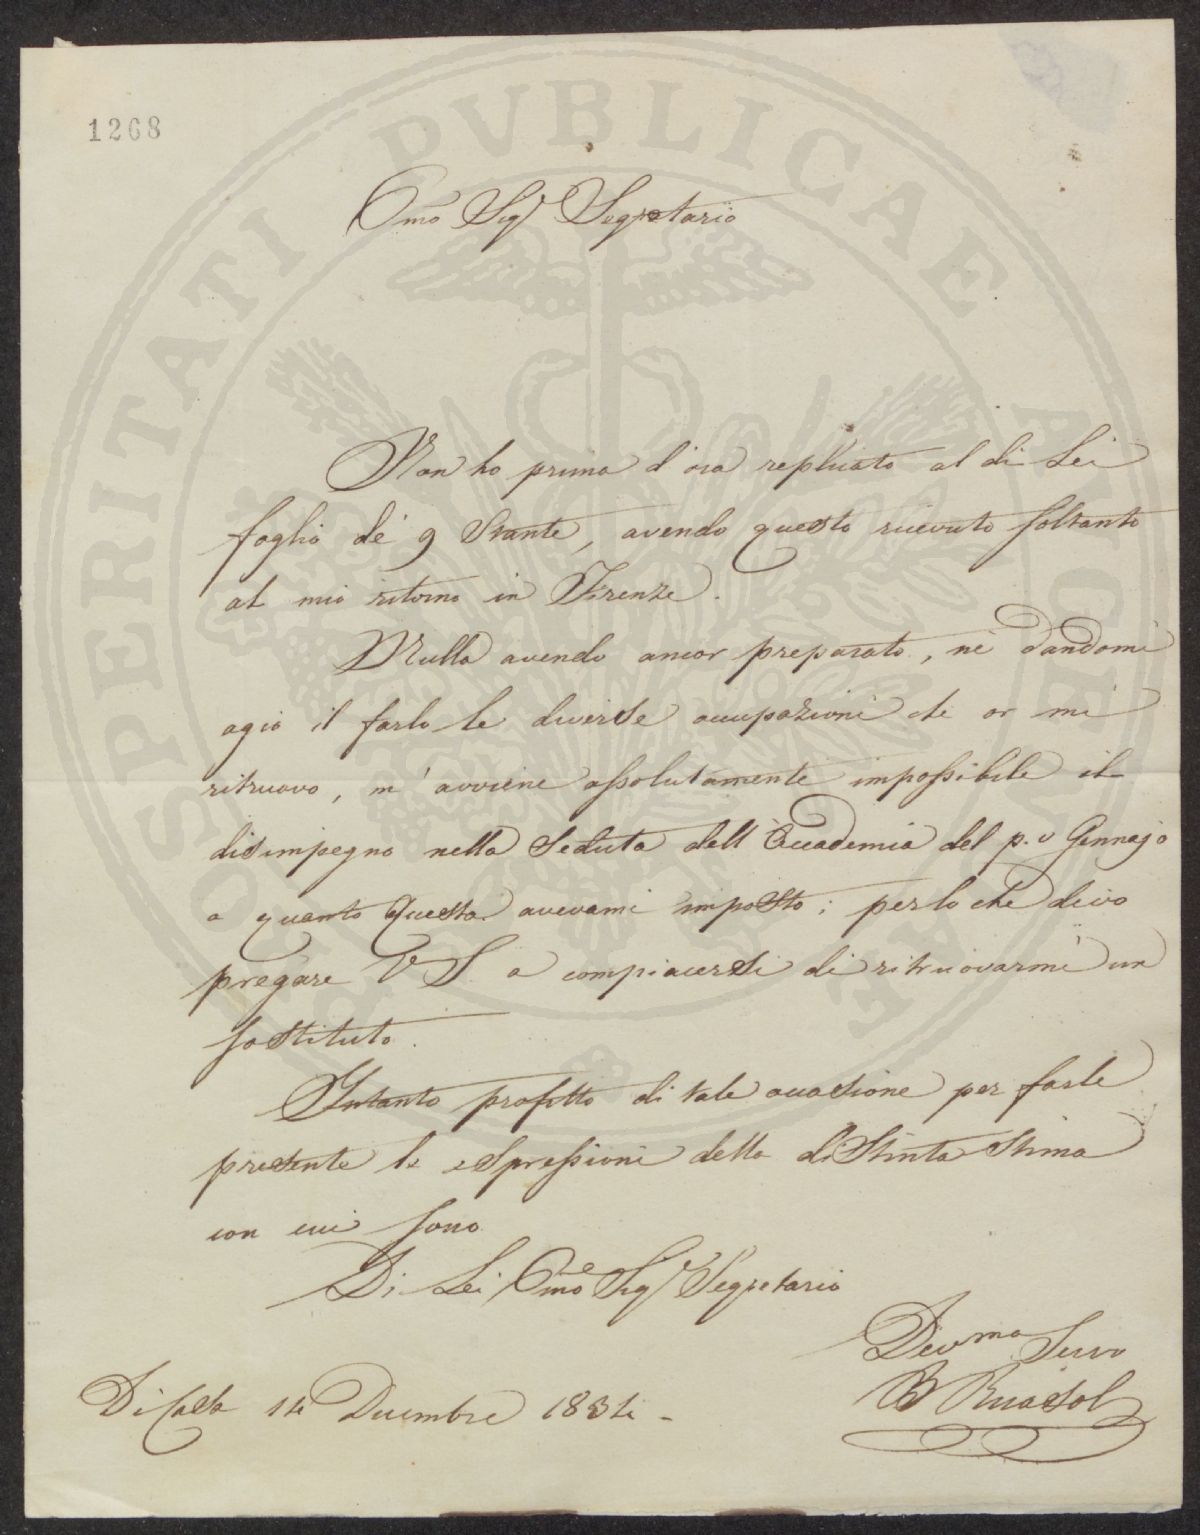 1268
Omo Sigr Segretario
Non ho prima d'ora replicato al di Lei
foglio de' 9 Stante, avendo questo ricevuto soltanto
al mio ritorno in Firenze.
Nulla avendo ancor preparato, nè dandomi
agio il farlo le diverse occupazioni che or mi
ritruovo, m'avviene assolutamente impossibile il
disimpegno nella Seduta dell'Accademia del p.o Gennajo
a quanto Questa avevami imposto; perlochè devo
pregare V S. a compiacersi di ritruovarmi un
sostituto.
Intanto profitto di tale occasione per farle
presente le espressioni della distinta Stima
con cui sono
Di Lei Omo Sigr Segretario
Devma Servo
B
Di Casa 14 Decembre 1834 -
PROSPERITATI PVBLICAE AVGENDAE